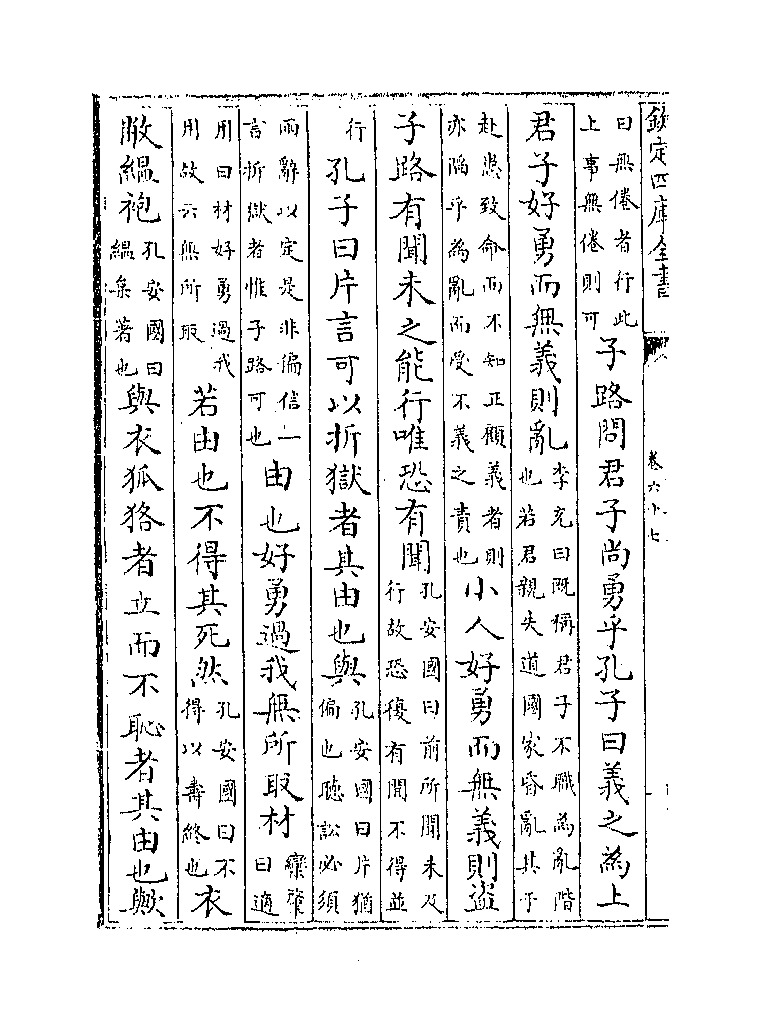 欽定四庫全書
卷六十七
曰無倦者行此
上事無倦則可
子路問君子尚勇乎孔子曰義之為上
君子好勇而無義則亂
李充曰既稱君子不職為亂階
也若君親失道國家昏亂其于
赴患致命而不知正顧義者則
亦陷乎為亂而受不義之責也
小人好勇而無義則盜
子路有聞未之能行唯恐有聞
孔安國曰前所聞未及
行故恐復有聞不得並
行
孔子曰片言可以折獄者其由也與
孔安國曰片猶
偏也聽訟必須
兩辭以定是非偏信一
言折獄者惟子路可也
由也好勇過我無所取材
欒肇
曰適
用曰材好勇過我
用故云無所取
若由也不得其死然
孔安國曰不
得以壽終也
衣
敝縕袍
孔安國曰
縕枲著也
與衣狐狢者立而不恥者其由也歟